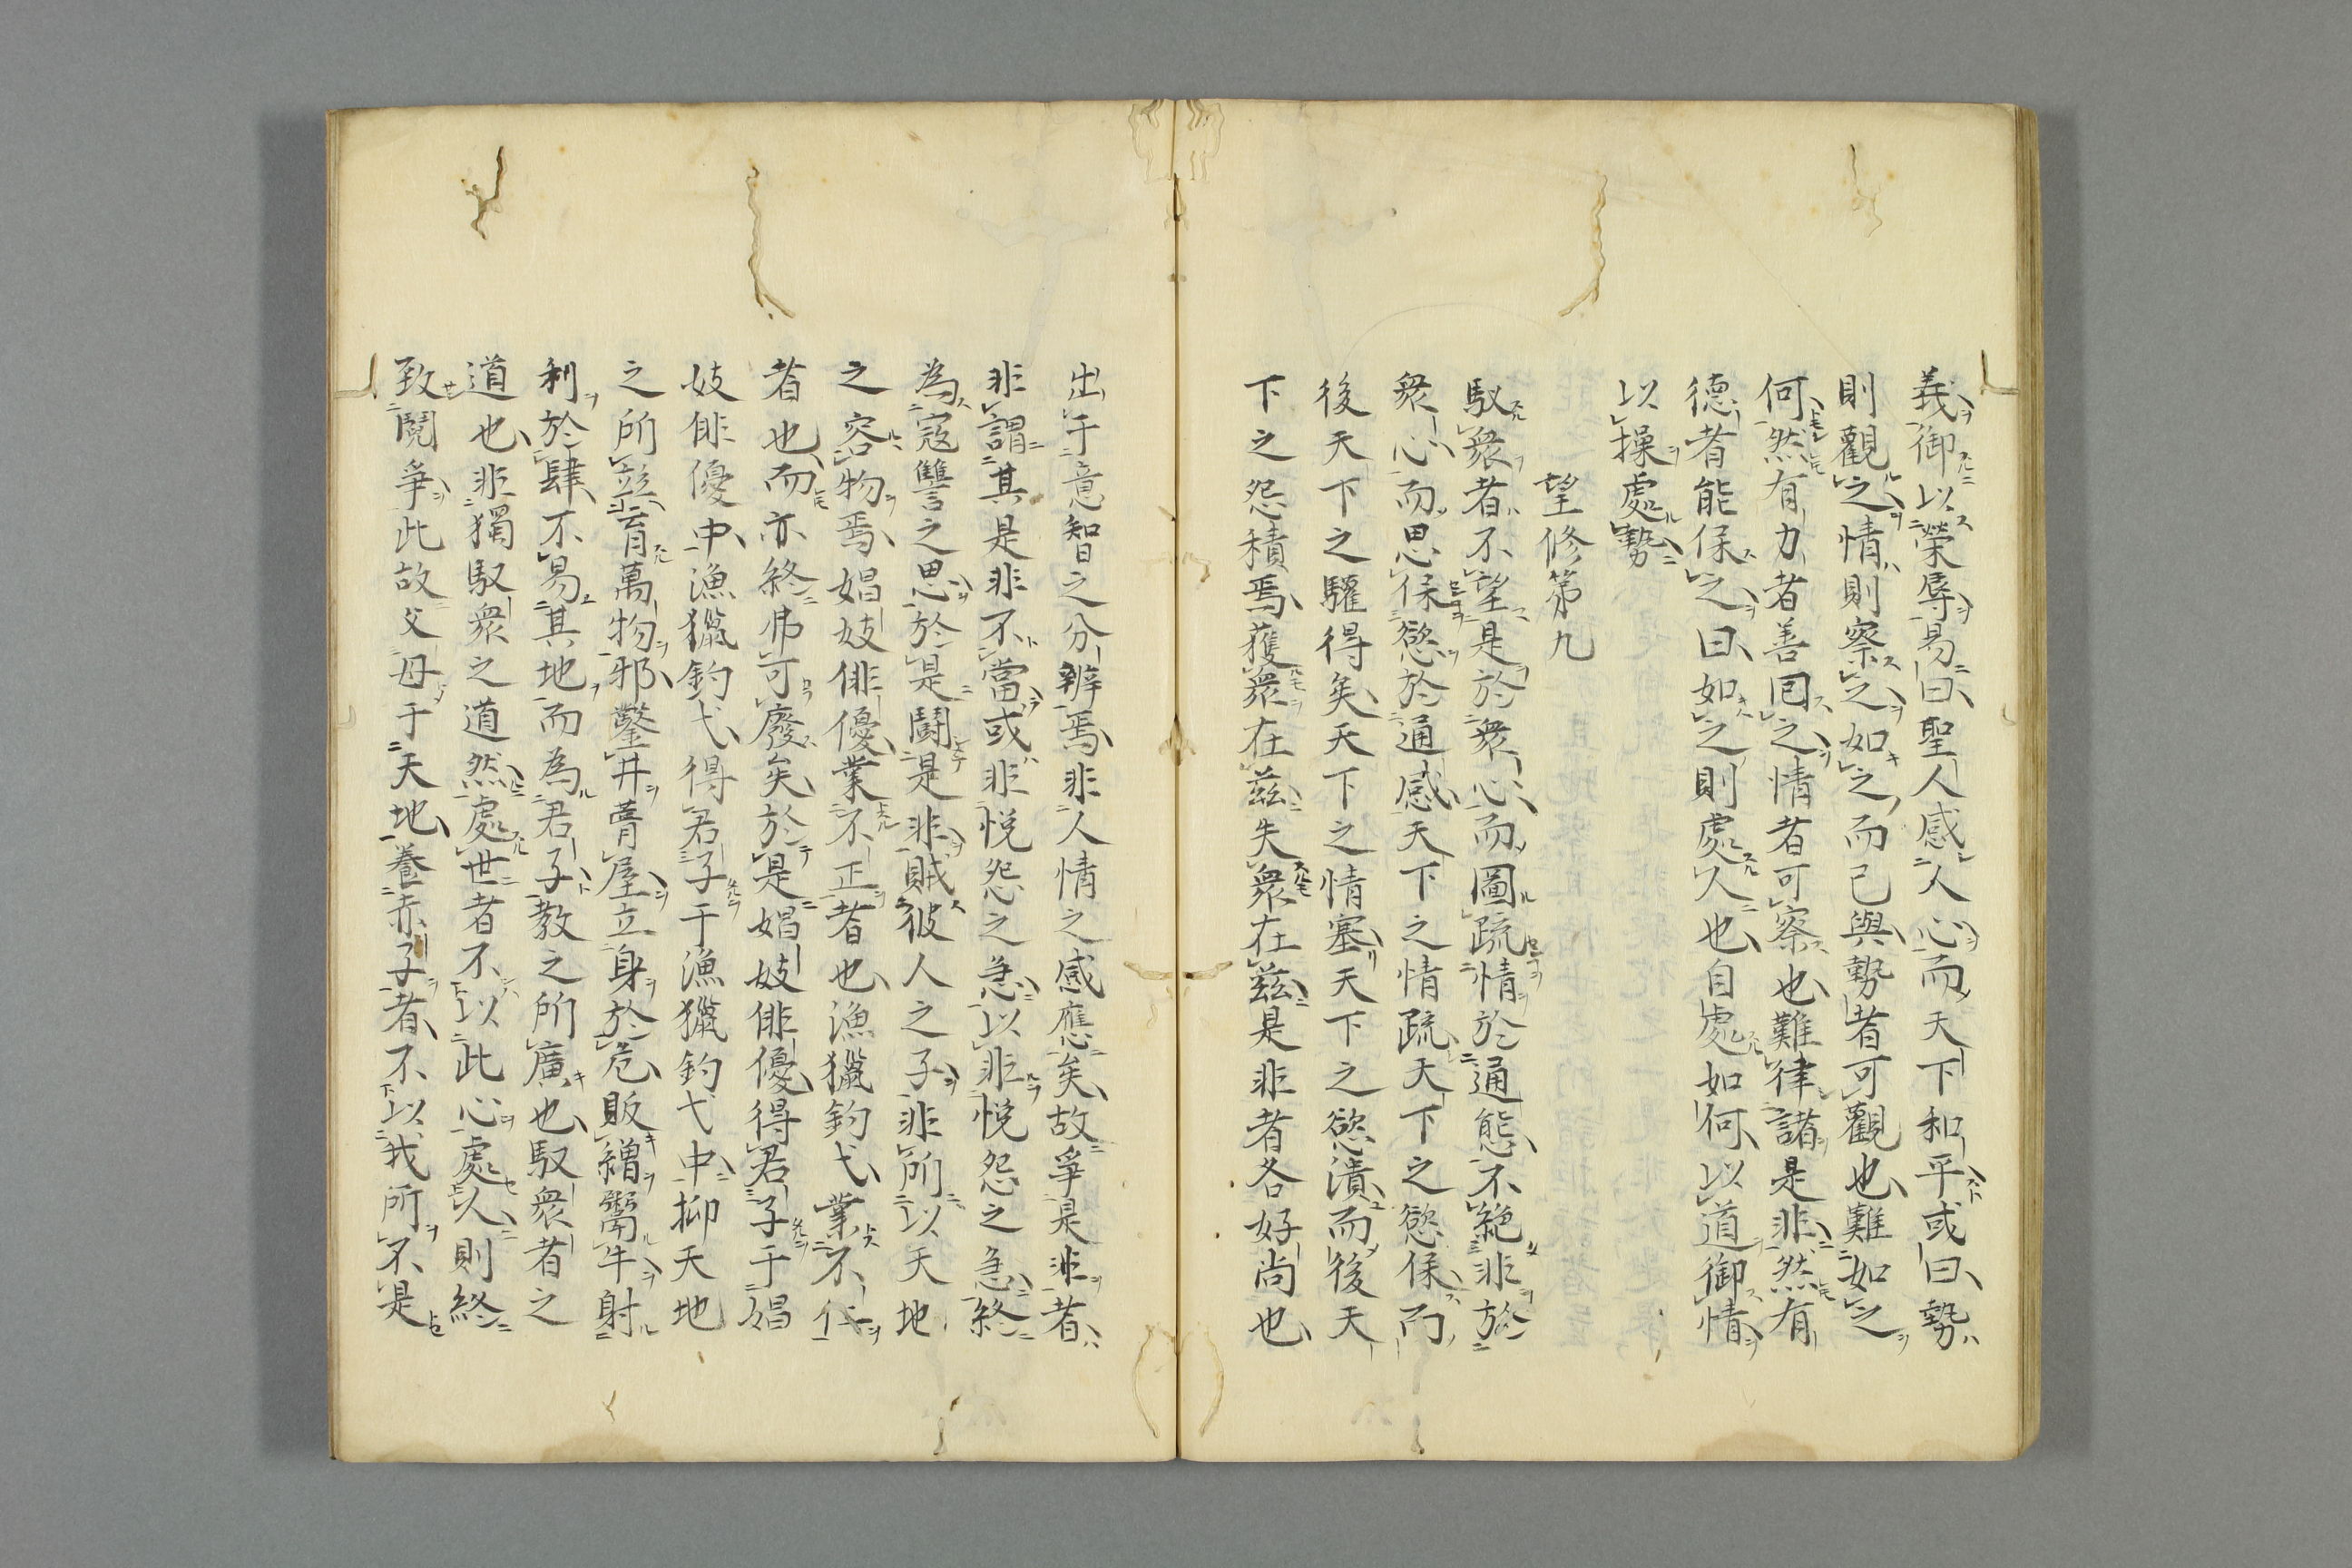 義御以榮辱易曰聖人感人心而天下和平或曰勢
則觀之情則察之如之而已與勢者可觀也難如之
何然有力者善囘之情者可察也難律諸是非然有
德者能保之曰如之則處人也自處如何以道御情
以操處勢
望修第九
馭衆者不望是於衆心而圖疏情於通態不絶非於
衆心而思保慾於通感天下之情疏天下之慾保而
後天下之驩得矣天下之情塞天下之慾潰而後天
下之怨積焉獲衆在茲失衆在茲是非者各好尚也
出于意智之分辨焉非人情之感應矣故爭是非者
非謂其是非不當或非悦怨之急以非悦怨之急終
為寇讐之思於是鬪是非賊彼人之子非所以天地
之容物焉娼妓俳優業不正者也漁獵釣弋業不仁
者也而亦終弗可廢矣於是娼妓俳優得君子于娼
妓俳優中漁獵釣弋得君子于漁獵釣弋中抑天地
之所竝育萬物邪鑿井膏屋立身於危販繒鬻牛射
利於肆不易其地而為君子教之所廣也馭衆者之
道也非獨馭衆之道然處世者不以此心處人則終
致鬪爭此故父母于天地養赤子者不以我所不是